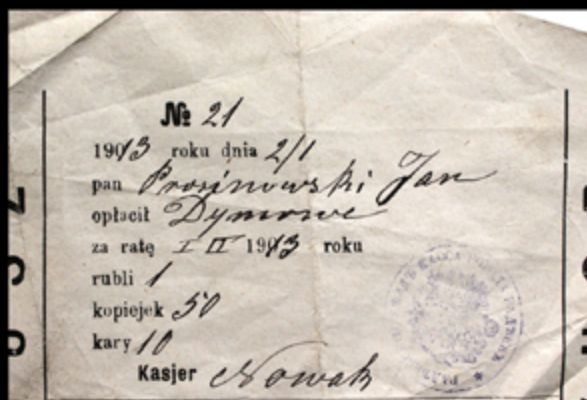 № 21
1913 roku dnia 2/1
pan Prosinowski Jan
opłacił Dymowe
za ratę I II 1913 roku
rubli 1
kopiejek 50
kary 10
Kasjer Nowak